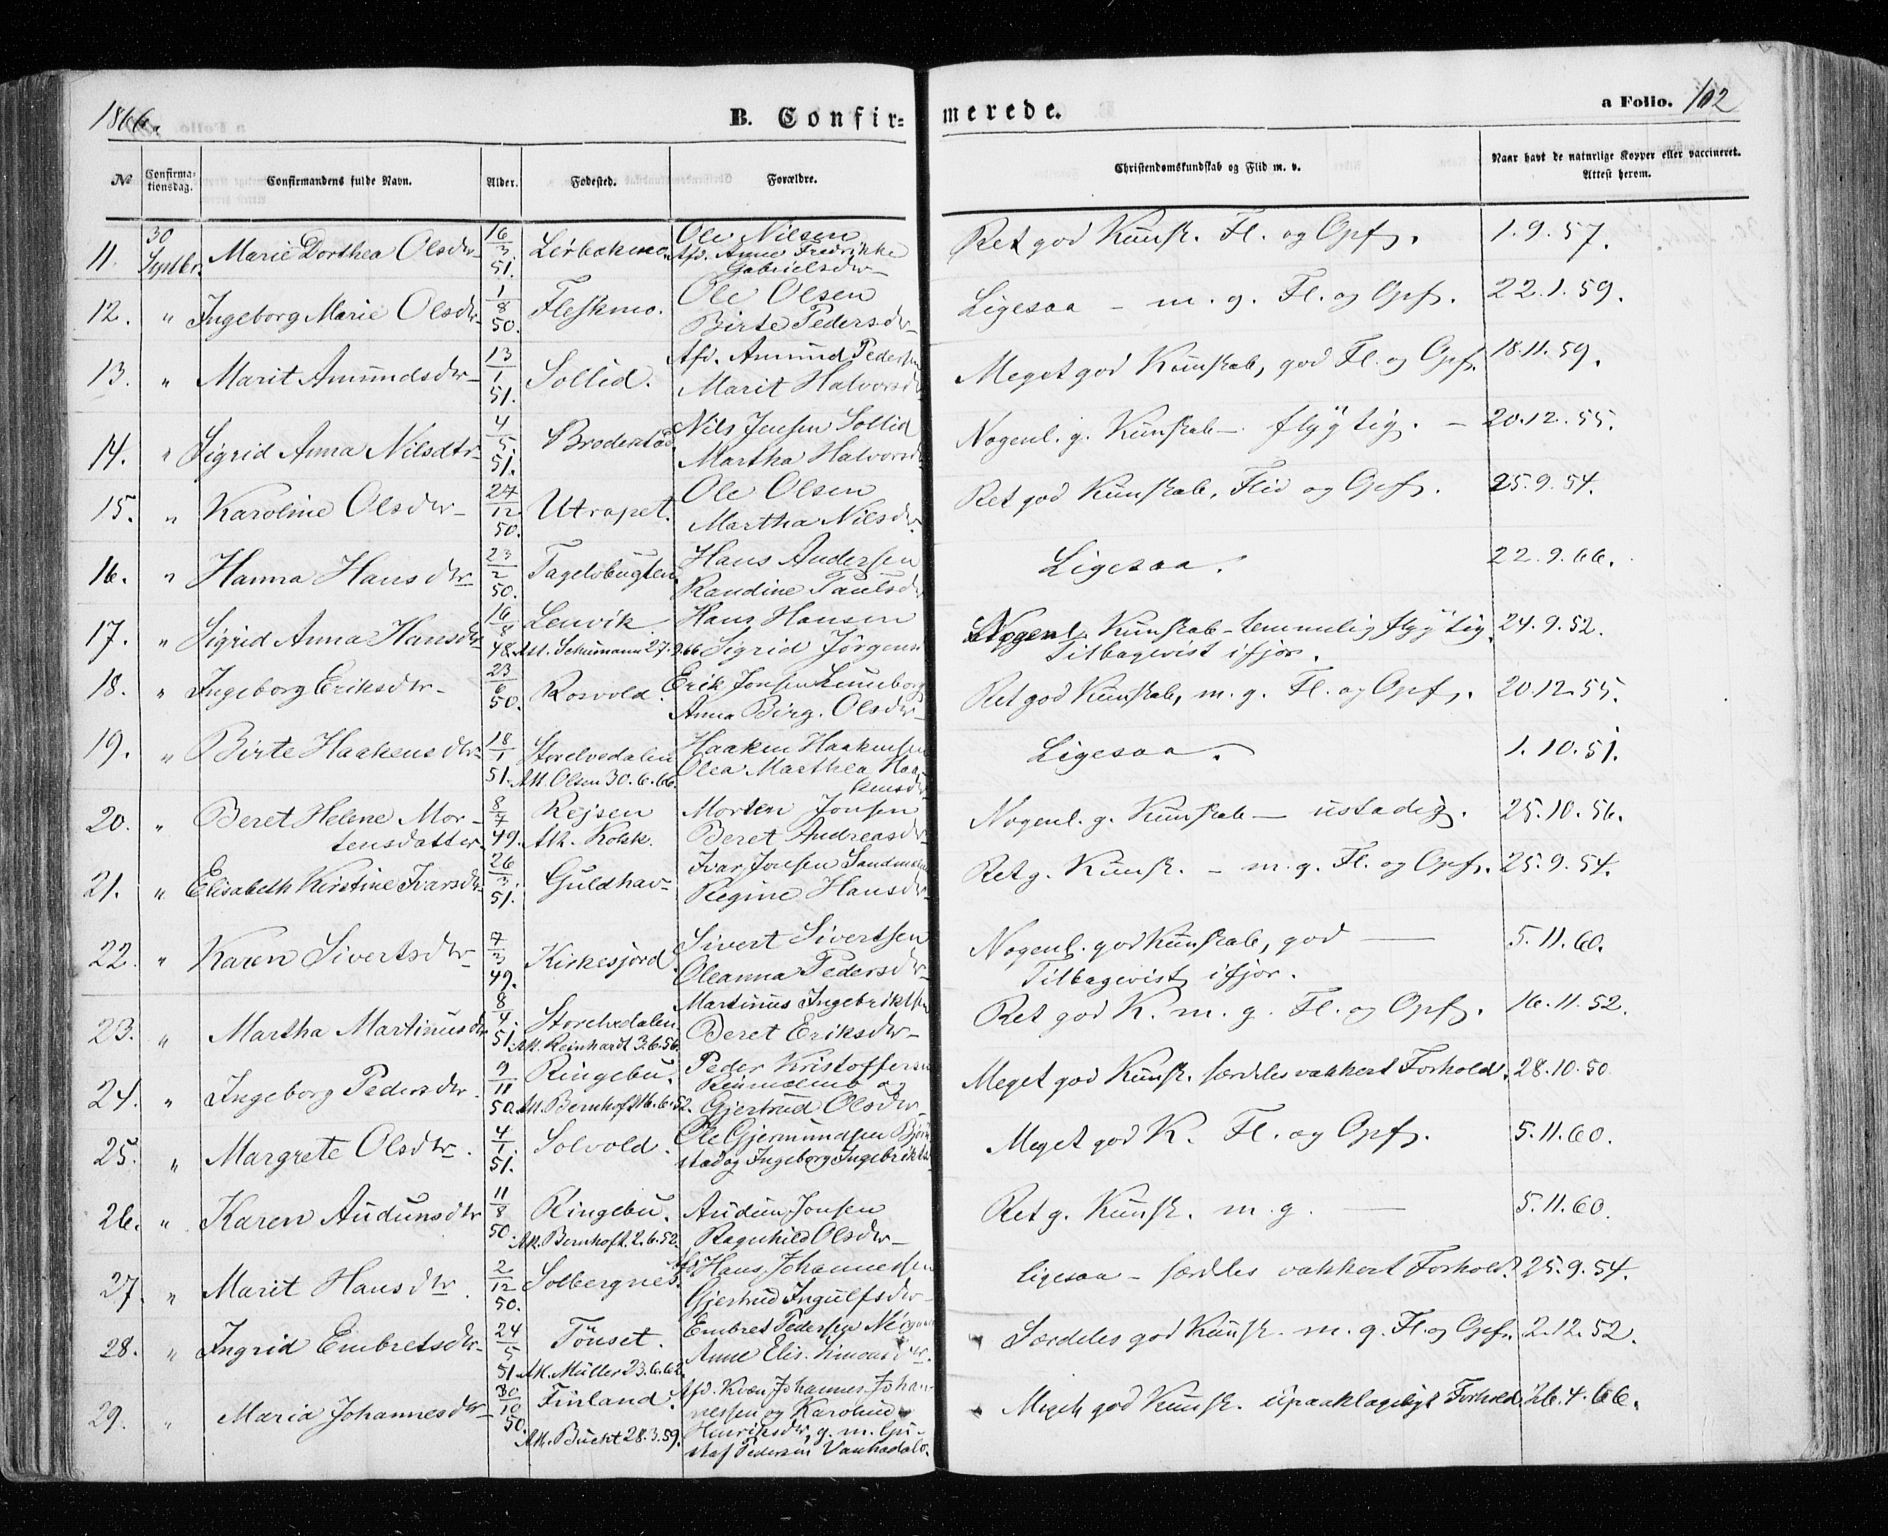 1866.
B. Confir=
merede.
a Folio. 102
No
Confirma-
tionsdag.
Confirmandens fulde Navn.
Alder.
Fødested.
Forældre.
Christendomskundskab og Flid m. v.
Naar havt de naturlige Kopper eller vaccineret.
Attest herom.
11. 30 Septbr. Marie Dorthea Olsdtr 16/3 51. Ole Nilsen
Afd. Anne Fredrikke
Gabrielsdtr
Ret god Kunsk. Fl. og Opf. 1.9.57.
12. " Ingeborg Marie Olsdtr 1/8 50. Fleskmo. Ole Olsen
Birte Pedersdtr
Ligesaa – m. g. Fl. og Opf. 22.1.59.
13. " Marit Amundsdtr 13/1 51. Sollid. Afd. Amund Pedersen
Marit Halvorsd
Meget god Kunskab, god Fl. og Opf. 18.11.59.
14. " Sigrid Anna Nilsdtr 4/5 51. Brodersta Nils Jensen Sollid
Martha Halvorsd
Nogenl. g. Kunskab – flygtig. – 20.12.55.
15. " Karoline Olsdtr 27/12 50. Utrapet. Ole Olsen
Martha Nilsdtr
Ret god Kunskab, Flid og Opf. 25.9.54.
16. " Hanna Hansdtr 23/2 50. Tagelvbugten Hans Andersen
Randine Paulsd
Ligesaa. 22.9.66.
17. " Sigrid Anna Hansdtr 16/8 48. Lenvik Hans Hansen
Att. Schumann 27.9.66 Sigrid Jörgens
Nogenl. Kunskab – temmelig flygtig. 24.9.52.
Tilbagevist ifjor.
18. " Ingeborg Eriksdtr 23/6 50. Rosvold. Erik Jonsen Luneborg
Anna Birg. Olsdtr
Ret god Kunskab, m. g. Fl. og Opf. 20.12.55.
19. " Birte Haakensdtr 18/1 51. Storelvedalen Haaken Haakensen
Att. Olsen 30.6.66. Olea Marthea Haa
kensdtr
Ligesaa. 1.10.51.
20. " Beret Helene Mor-
tensdatter 8/7 49. Rejsen Morten Jonsen
Att. Kolk. Beret Andreasdtr
Nogenl. g. Kunskab – ustadig. 25.10.56.
21. " Elisabeth Kirstine Ivarsdtr 26/3 51. Guldhav Ivar Jonsen Sandmoen
Regine Hansdtr
Ret g. Kunsk. – m. g. Fl. og Opf. 25.9.54.
22. " Karen Sivertsdtr 7/3 49. Kirkesjord. Sivert Sivertsen
Oleanna Pedersdtr
Nogenl. god Kunskab, god — 5.11.60.
Tilbagevist ifjor.
23. " Martha Martinusdtr 8/4 51. Storelvedalen Martinus Ingebriktsen
Att. Reinhardt 3.6.56. Beret Eriksdtr
Ret god K. m. g. Fl. og Opf. 16.11.52.
24. " Ingeborg Pedersdtr. 9/11 50. Ringebu. Peder Kristoffersen
Att. Bernhoft 16.6.52. Gjertrud Olsdtr
Meget god Kunsk. særdeles vakkert Forhold. 28.10.50.
25. " Margrete Olsdtr. 4/1 51. Solvold. Ole Gjermundsen Björn
stad og Ingeborg Ingebrikts
Meget god K. Fl. og Opf. 5.11.60.
26. " Karen Audunsdtr 11/8 50. Ringebu. Audun Jonsen
Att. Bernhoft. 2.6.52. Ragnhild Olsdtr
Ret g. Kunsk. m. g. — 5.11.60.
27. " Marit Hansdtr. 2/12 50. Solbergnes. Afd. Hans Johannessen
Gjertrud Ingulfsdtr
ligesaa – særdles vakkert Forhold. 25.9.54.
28. " Ingrid Embretsdtr 24/5 51. Tönset. Embret Pedersen
Att. Müller 23.6.62. Anne Elis. Simonsdtr.
Særdeles god Kunsk. m. g. Fl. og Opf. 2.12.52.
29. " Maria Johannesdtr 30/10 50. Finland. Afd. Kvæn Johannes Johan-
nessen og Karoline
Att. Buckt 28.3.59. Henriksdtr, g. m. Gu-
staf Pedersen
Meget god Kunsk. upaaklageligt Forhold 26.4.66.